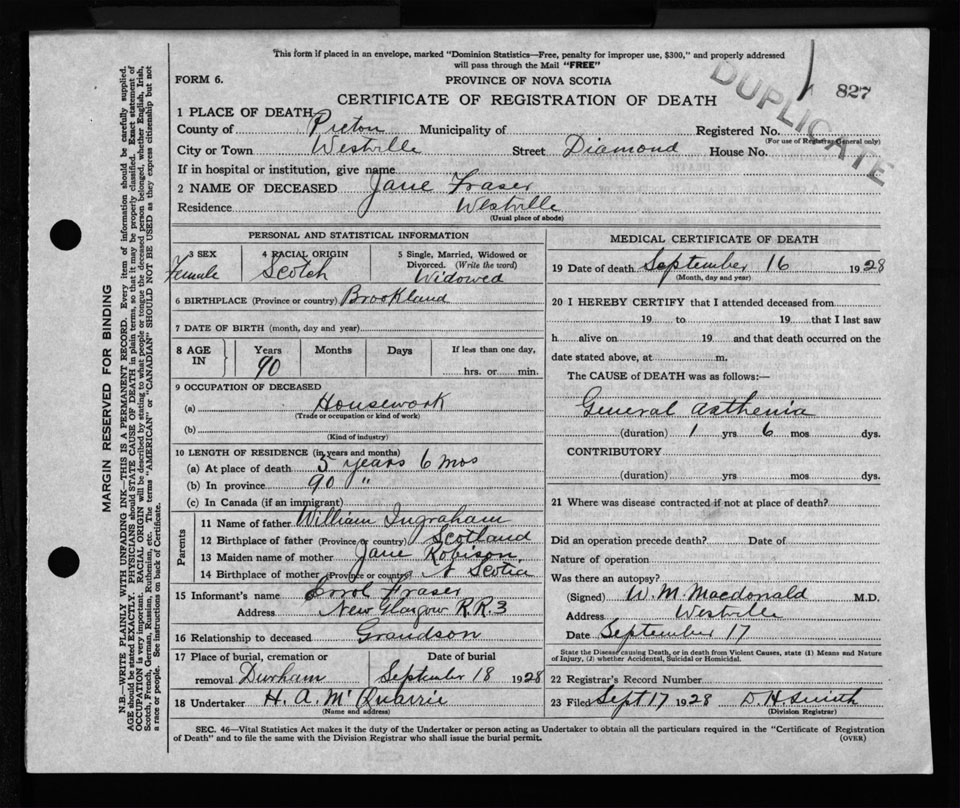 This form if placed in an envelope, marked "Dominion Statistics—Free, penalty for improper use, $300," and properly addressed
will pass through the Mail "FREE"
FORM 6.
PROVINCE OF NOVA SCOTIA
DUPLICATE
827
CERTIFICATE OF REGISTRATION OF DEATH
1 PLACE OF DEATH
County of Pictou Municipality of Registered No.
(For use of Registrar General only)
City or Town Westville Street Diamond House No.
If in hospital or institution, give name
2 NAME OF DECEASED Jane Fraser
Residence Westville
(Usual place of abode)
PERSONAL AND STATISTICAL INFORMATION
3 SEX Female
4 RACIAL ORIGIN Scotch
5 Single, Married, Widowed or Divorced. (Write the word) Widowed
6 BIRTHPLACE (Province or country) Brookland
7 DATE OF BIRTH (month, day and year)
8 AGE IN Years Months Days If less than one day,
90 hrs. or min.
9 OCCUPATION OF DECEASED
(a) Housework
(Trade or occupation or kind of work)
(b)
(Kind of industry)
10 LENGTH OF RESIDENCE (in years and months)
(a) At place of death 5 years 6 mos
(b) In province 90 "
(c) In Canada (if an immigrant)
Parents
11 Name of father William Ingraham
12 Birthplace of father (Province or country) Scotland
13 Maiden name of mother Jane Robison
14 Birthplace of mother (Province or country) N Scotia
15 Informant's name Errol Fraser
Address New Glasgow R.R.3
16 Relationship to deceased Grandson
17 Place of burial, cremation or removal Durham
Date of burial September 18 1928
18 Undertaker H. A. McQuarrie
(Name and address)
MEDICAL CERTIFICATE OF DEATH
19 Date of death September 16 1928
(Month, day and year)
20 I HEREBY CERTIFY that I attended deceased from
19 to 19 that I last saw
h alive on 19 and that death occurred on the
date stated above, at m.
The CAUSE of DEATH was as follows:—
General Asthenia
(duration) 1 yrs 6 mos dys.
CONTRIBUTORY
(duration) yrs mos dys.
21 Where was disease contracted if not at place of death?
Did an operation precede death? Date of
Nature of operation
Was there an autopsy?
(Signed) W. M. Macdonald M.D.
Address Westville
Date September 17
State the Disease causing Death, or in death from Violent Causes, state (1) Means and Nature
of Injury, (2) whether Accidental, Suicidal or Homicidal.
22 Registrar's Record Number
23 Filed Sept 17 1928 D. H. Smith
(Division Registrar)
SEC. 46—Vital Statistics Act makes it the duty of the Undertaker or person acting as Undertaker to obtain all the particulars required in the "Certificate of Registration
of Death" and to file the same with the Division Registrar who shall issue the burial permit.
(OVER)
MARGIN RESERVED FOR BINDING
N.B.—WRITE PLAINLY WITH UNFADING INK—THIS IS A PERMANENT RECORD. Every item of information should be carefully supplied.
AGE should be stated EXACTLY. PHYSICIANS should STATE CAUSE OF DEATH in plain terms, so that it may be properly classified. Exact statement of
OCCUPATION is very important. RACIAL ORIGIN will be described by stating to what people or tongue the deceased person belonged, whether English, Irish,
Scotch, French, German, Russian, Ruthenian, etc. The terms "AMERICAN" or "CANADIAN" SHOULD NOT BE USED as they express citizenship but not
a race or people. See instructions on back of Certificate.